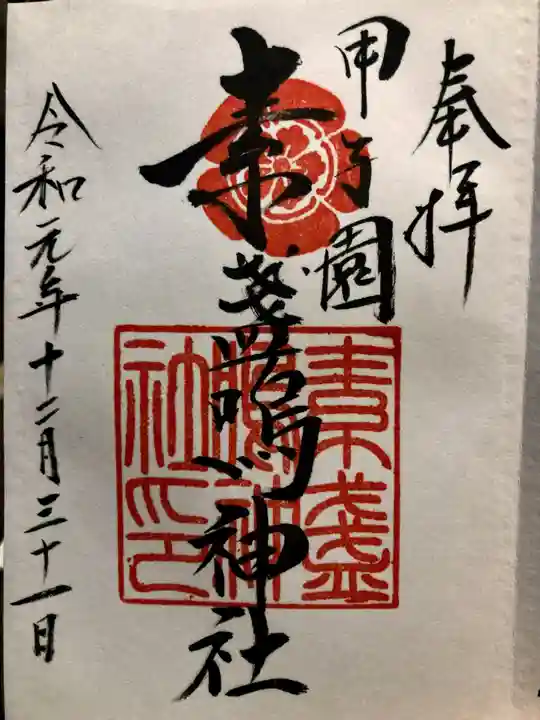 奉拝
甲子園
素盞嗚神社
素盞
嗚神
社印
令和元年十二月三十一日